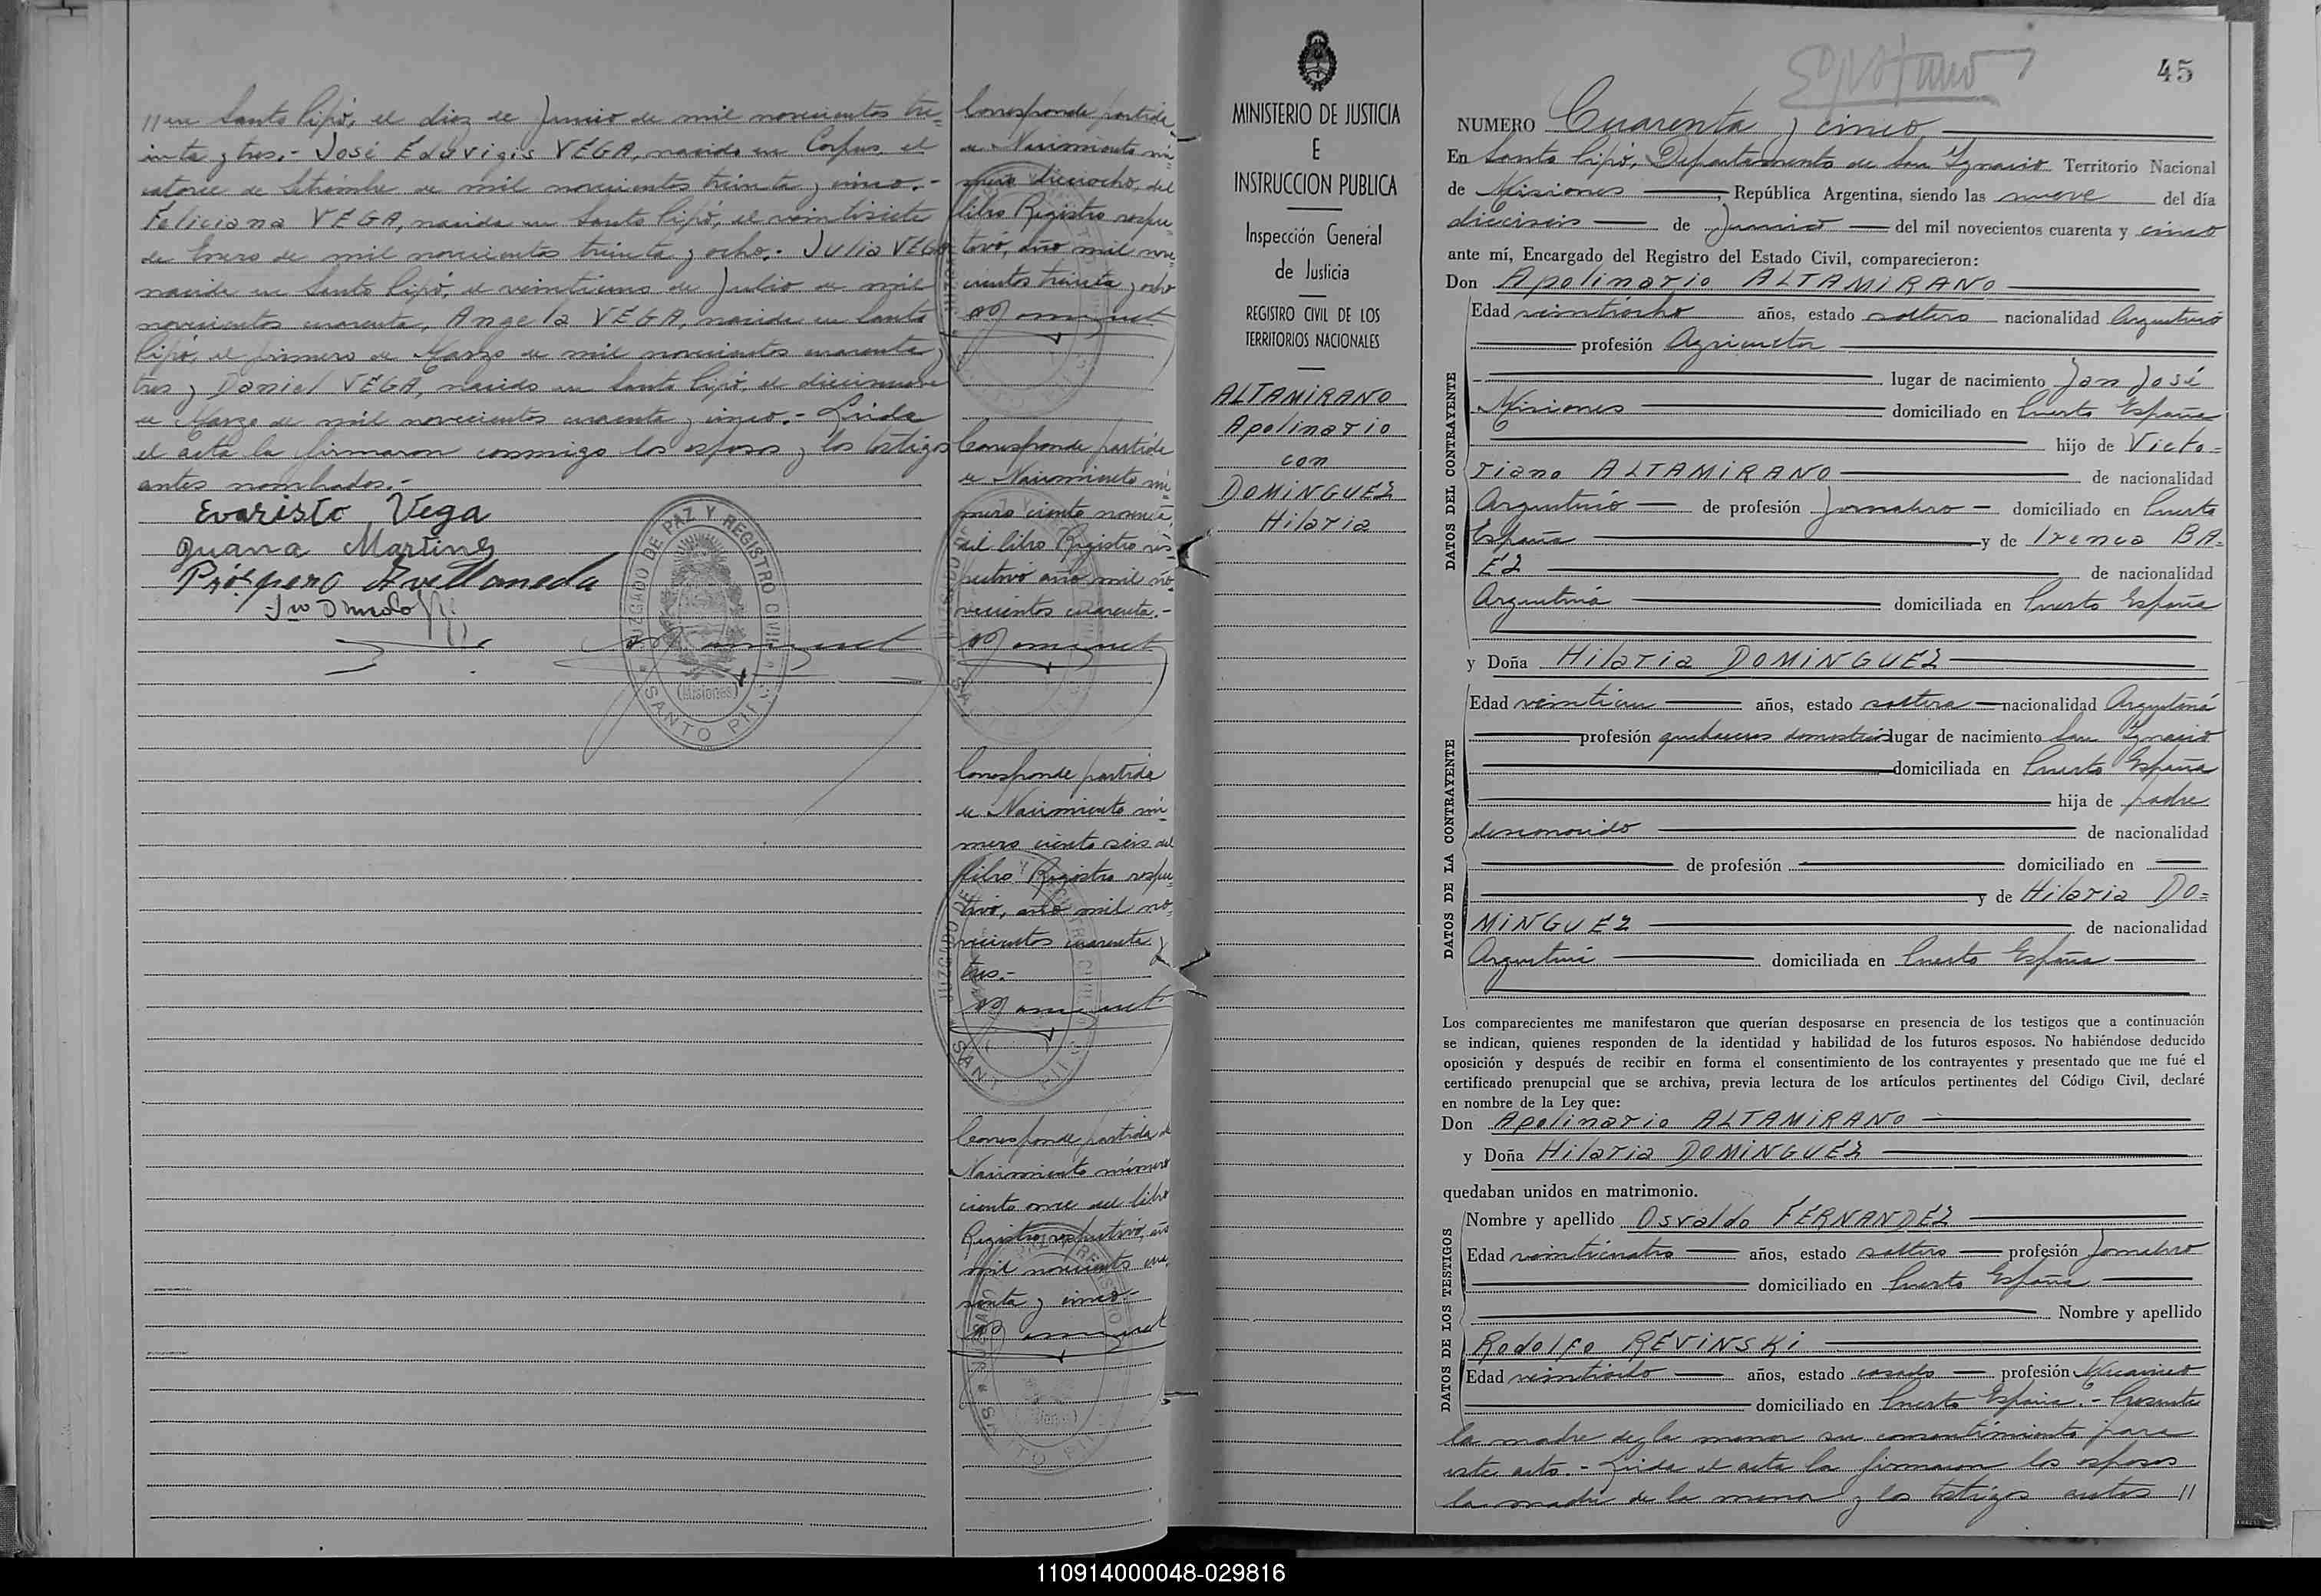 // en Santo Pipó, el diez de Junio de mil novecientos tre=
inta y tres.- José Eduvigis VEGA, nacido en Corpus, el
catorce de Setiembre de mil novecientos treinta y cinco.-
Feliciana VEGA, nacida en Santo Pipó, el veintisiete
de Enero de mil novecientos treinta y ocho.- Julia VEGA
nacida en Santo Pipó, el veintiuno de Julio de mil
novecientos cuarenta, Angela VEGA, nacida en Santo
Pipó, el primero de Marzo de mil novecientos cuarenta y
tres y Daniel VEGA, nacido en Santo Pipó, el diecinueve
de Marzo de mil novecientos cuarenta y cinco.- Leida
el acta la firmaron conmigo los esposos y los testigos
antes nombrados.-
Evaristo Vega
Juana Martinez
Próspero Avellaneda
JUZGADO DE PAZ Y REGISTRO CIVIL
(Misiones)
SANTO PIPÓ
Corresponde partida
de Nacimiento nú=
mero dieciocho, del
libro Registro respec
tivo, año mil nove
cientos treinta y ocho
Corresponde partida
de Nacimiento nú=
mero ciento noventa,
del libro Registro res
pectivo año mil no
vecientos cuarenta.-
Corresponde partida
de Nacimiento nú
mero ciento seis del
libro Registro respec
tivo, año mil no=
vecientos cuarenta y
tres.-
Corresponde partida de
Nacimiento número
ciento once del libro
Registro respectivo, año
mil novecientos cua
renta y cinco.-
MINISTERIO DE JUSTICIA
E
INSTRUCCION PUBLICA
Inspección General
de Justicia
REGISTRO CIVIL DE LOS
TERRITORIOS NACIONALES
ALTAMIRANO
Apolinario
con
DOMINGUEZ
Hilaria
45
NUMERO Cuarenta y cinco
En Santo Pipó, Departamento de San Ignacio Territorio Nacional
de Misiones, República Argentina, siendo las nueve del día
dieciseis de Junio del mil novecientos cuarenta y cinco
ante mí, Encargado del Registro del Estado Civil, comparecieron:
Don Apolinario ALTAMIRANO
DATOS DEL CONTRAYENTE
Edad veintiocho años, estado soltero nacionalidad Argentino
profesión Agricultor
lugar de nacimiento San José
Misiones domiciliado en Puerto España
hijo de Victo=
riano ALTAMIRANO de nacionalidad
Argentino de profesión Jornalero domiciliado en Puerto
España y de Irenea BA=
EZ de nacionalidad
Argentina domiciliada en Puerto España
y Doña Hilaria DOMINGUEZ
DATOS DE LA CONTRAYENTE
Edad veintiun años, estado soltera nacionalidad Argentina
profesión quehaceres domesticos lugar de nacimiento San Ignacio
domiciliada en Puerto España
hija de padre
desconocido de nacionalidad
de profesión domiciliado en
y de Hilaria DO=
MINGUEZ de nacionalidad
Argentina domiciliada en Puerto España
Los comparecientes me manifestaron que querían desposarse en presencia de los testigos que a continuación
se indican, quienes responden de la identidad y habilidad de los futuros esposos. No habiéndose deducido
oposición y después de recibir en forma el consentimiento de los contrayentes y presentado que me fué el
certificado prenupcial que se archiva, previa lectura de los artículos pertinentes del Código Civil, declaré
en nombre de la Ley que:
Don Apolinario ALTAMIRANO
y Doña Hilaria DOMINGUEZ
quedaban unidos en matrimonio.
DATOS DE LOS TESTIGOS
Nombre y apellido Osvaldo FERNANDEZ
Edad veinticuatro años, estado soltero profesión Jornalero
domiciliado en Puerto España
Nombre y apellido
Rodolfo REVINSKI
Edad veintiocho años, estado casado profesión Mecánico
domiciliado en Puerto España.- Presente
la madre de la menor su consentimiento para
este acto.- Leida el acta la firmaron los esposos
la madre de la menor y los testigos antes //
110914000048-029816